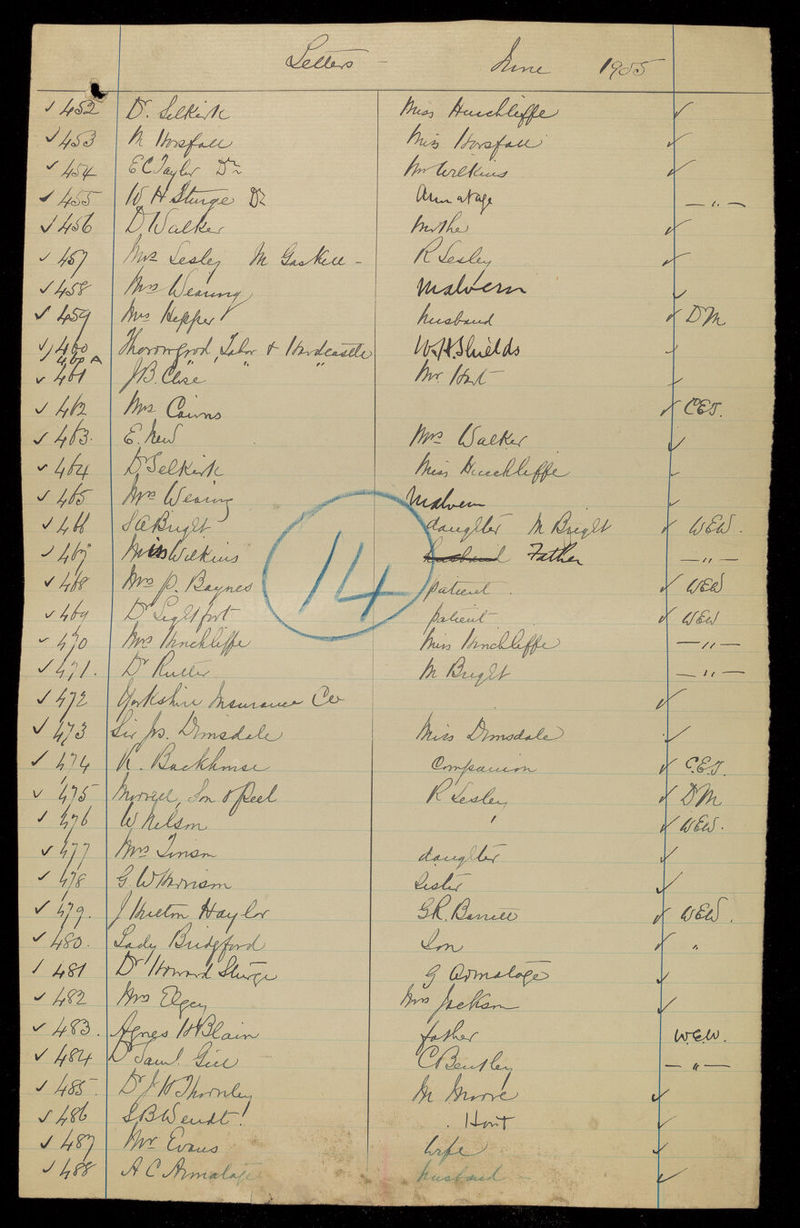 Letters - June 1905
✓ 452 Dr. Selkirk Miss Hinchliffe ✓
✓ 453 M Horsfall Miss Horsfall ✓
✓ 454 E C Taylor Dr Mr Wilkins ✓
✓ 455 W H Sturge Dr Armatage — " —
✓ 456 D Walker Mother ✓
✓ 457 Mrs Lesley M Gaskell - R Lesley ✓
✓ 458 Mrs Wearing Malvern ✓
✓ 459 Mrs Hepper husband ✓ DM
✓ 460 Thorowgood, Tabor & Hardcastle W.H. Shields ✓
460 A " " "
✓ 461 J B. Clise Mr Hort ✓
✓ 462 Mrs Cairns ✓ C.E.T.
✓ 463. E. New Mrs Walker ✓
✓ 464 Dr Selkirk Miss Hinchliffe ✓
✓ 465 Mrs Wearing Malvern ✓
✓ 466 S A Bright daughter M Bright ✓ WEW.
✓ 467 Miss Wilkins husband Father — " —
✓ 468 Mrs P. Baynes patient. ✓ WEW
✓ 469 Dr Lightfoot patient ✓ WEW
14
✓ 470 Mrs Hinchliffe Miss Hinchliffe — " —
✓ 471. Dr Rutter M Bright — " —
✓ 472 Yorkshire Insurance Co ✓
✓ 473 Sir Js. Dimsdale Miss Dimsdale ✓
✓ 474 K. Backhouse Companion ✓ C.E.T.
✓ 475 Son & Peel R Lesley ✓ DM
✓ 476 W Nelson ' ✓ WEW.
✓ 477 Mrs daughter ✓
✓ 478 G. W Morison Sister ✓
✓ 479. J Haylor G R. ✓ WEW.
✓ 480. Lady Bridgford Son ✓ "
✓ 481 Dr Howard Sturge G Armatage ✓
✓ 482 Mrs Elgey Mrs Jackson ✓
✓ 483. Agnes H Blain father W.E.W.
✓ 484 Dr Saml. Gill C Bentley — " —
✓ 485. Dr J H Thornley M Moore ✓
✓ 486 S B Wendt! . Hort ✓
✓ 487 Mr Evans Wife ✓
✓ 488 A C Armatage husband ✓